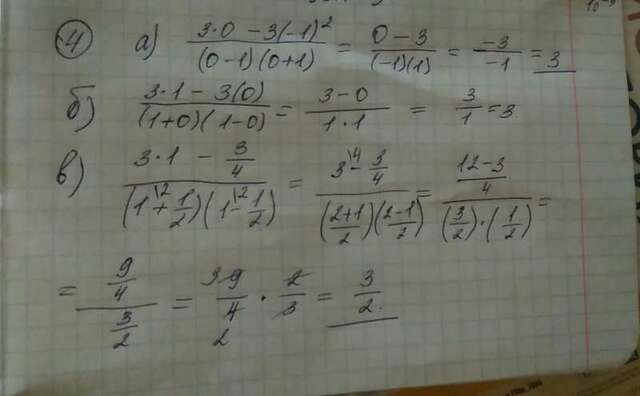 ④ а) (3·0 - 3(-1)²)/((0-1)(0+1)) = (0-3)/((-1)(1)) = (-3)/(-1) = 3
б) (3·1 - 3(0))/((1+0)(1-0)) = (3-0)/(1·1) = 3/1 = 3
в) (3·1 - 3/4)/((1\2 + 1/2)(1\2 - 1/2)) = (3\4 - 3/4)/(((2+1)/2)((2-1)/2)) = ((12-3)/4)/((3/2)·(1/2)) =
= (9/4)/(3/2) = 3 9/4 2 · 2/3 = 3/2.
10⁻⁹